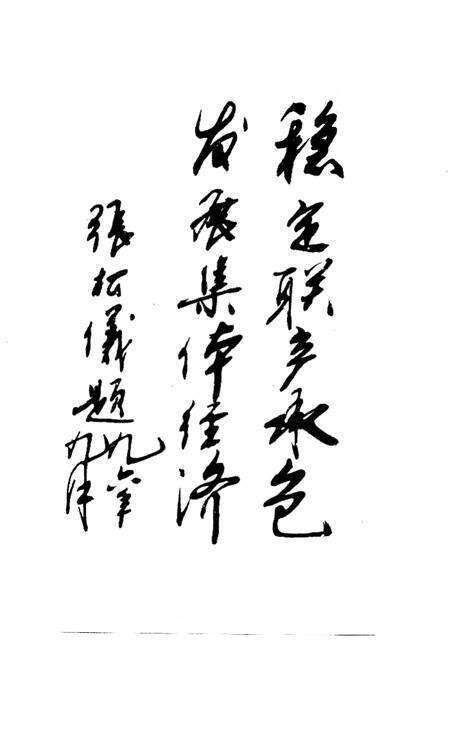 稳定联产承包
发展集体经济
張松儀題
九六年
九月